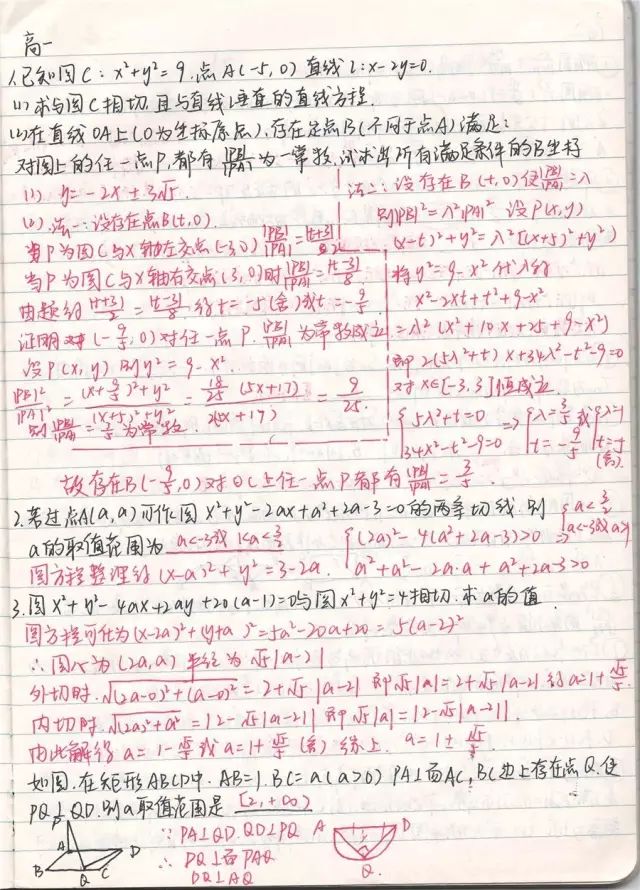 高一
1.已知圆C：x²+y²=9，点A(-5,0) 直线l:x-2y=0.
(1)求与圆C相切，且与直线l垂直的直线方程.
(2)在直线OA上(O为坐标原点)，存在定点B(不同于点A)满足：
对圆上的任一点P，都有|PB|/|PA|为一常数，试求出所有满足条件的B坐标
(1) y=-2x±3√5.
(2)法一：设存在点B(t,0)
当P为圆C与x轴左交点(-3,0) |PB|/|PA|=|t+3|/2
当P为圆C与x轴右交点(3,0)时|PB|/|PA|=|t-3|/8.
由题的|t+3|/2=|t-3|/8 得t=-5(舍)或t=-9/5
证明对(-9/5,0)对任一点P，|PB|/|PA|为常数成立
设P(x,y) 则y²=9-x².
|PB|²/|PA|²=((x+9/5)²+y²)/((x+5)²+y²)=(18/25(5x+17))/(2(5x+17))=9/25.
则|PB|/|PA|=3/5为常数.
法二：设存在B(t,0)使|PB|/|PA|=λ
则|PB|²=λ²|PA|² 设P(x,y)
(x-t)²+y²=λ²[(x+5)²+y²)
将y²=9-x²代入得
x²-2xt+t²+9-x²
=λ²(x²+10x+25+9-x²)
即2(5λ²+t)x+34λ²-t²-9=0
对x∈[-3,3]恒成立
{5λ²+t=0 34λ²-t²-9=0 ⇒ {λ=3/5 t=-9/5 或{λ=1 t=-5 (舍).
故存在B(-9/5,0)对⊙C上任一点P都有|PB|/|PA|=3/5.
2.若过点A(a,a)可作圆x²+y²-2ax+a²+2a-3=0的两条切线，则
a的取值范围为 a<-3或1<a<3/2 {(2a)²-4(a²+2a-3)>0 a²+a²-2a·a+a²+2a-3>0 ⇒{a<3/2 a<-3或a>1
圆方程整理得(x-a)²+y²=3-2a.
3.圆x²+y²-4ax+2ay+20(a-1)=0与圆x²+y²=4相切，求a的值.
圆方程可化为(x-2a)²+(y+a)²=5a²-20a+20=5(a-2)²
∴圆心为(2a,a) 半径为√5|a-2|
外切时，√(2a-0)²+(a-0)²=2+√5|a-2| 即√5|a|=2+√5|a-2| 得a=1+√5/5
内切时，√(2a)²+a²=|2-√5|a-2|| 即√5|a|=|2-√5|a-2||.
由此解得a=1-√5/5或a=1+√5/5(舍) 综上，a=1±√5/5.
如图，在矩形ABCD中，AB=1，BC=a(a>0) PA⊥面AC，BC边上存在点Q，使
PQ⊥QD，则a取值范围是 [2,+∞)
P A B Q C D
∵PA⊥QD，QD⊥PQ
∴DQ⊥面PAQ
DQ⊥AQ
A D Q